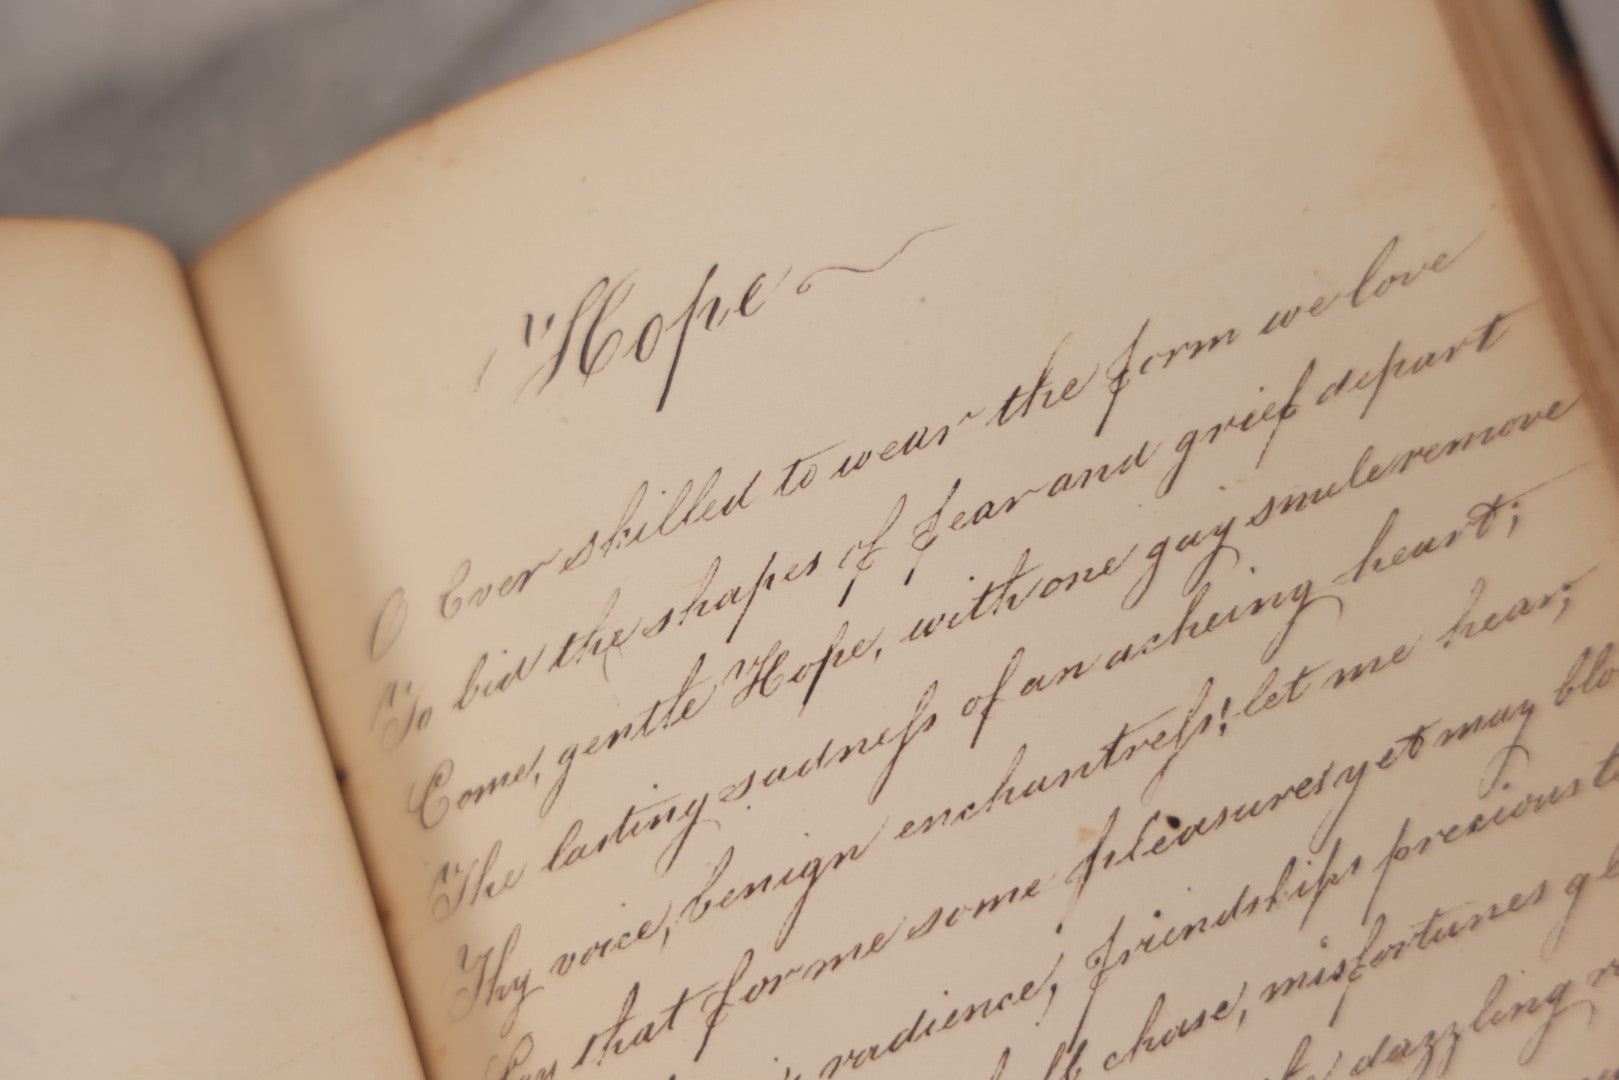 "Hope
O Ever skilled to wear the form we love
To bid the shapes of fear and grief depart
Come, gentle Hope, with one gay smile remove
The lasting sadneſs of an acheing heart;
Thy voice, benign enchantreſs! let me hear;
Say that for me some pleasures yet may
radience, friendships precious
chase, misfortunes
dazzling